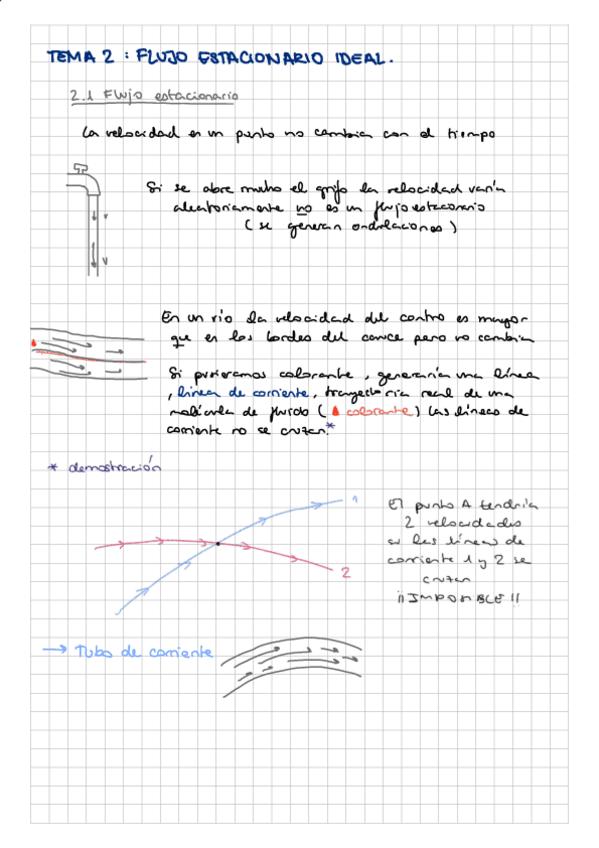 TEMA 2 : FLUJO ESTACIONARIO IDEAL.
2.1 Flujo estacionario
La velocidad en un punto no cambia con el tiempo
Si se abre mucho el grifo la velocidad varía
aleatoriamente no es un flujo estacionario
( se generan ondulaciones )
v
v
En un río la velocidad del centro es mayor
que en los bordes del cauce pero no cambia
Si pusieramos colorante , generaría una línea
, línea de corriente, trayectoria real de una
molécula de fluido ( colorante) Las líneas de
corriente no se cruzan.*
* demostración
1
2
El punto A tendría
2 velocidades
si las líneas de
corriente 1 y 2 se
cruzan
¡¡IMPOSIBLE!!
→ Tubo de corriente